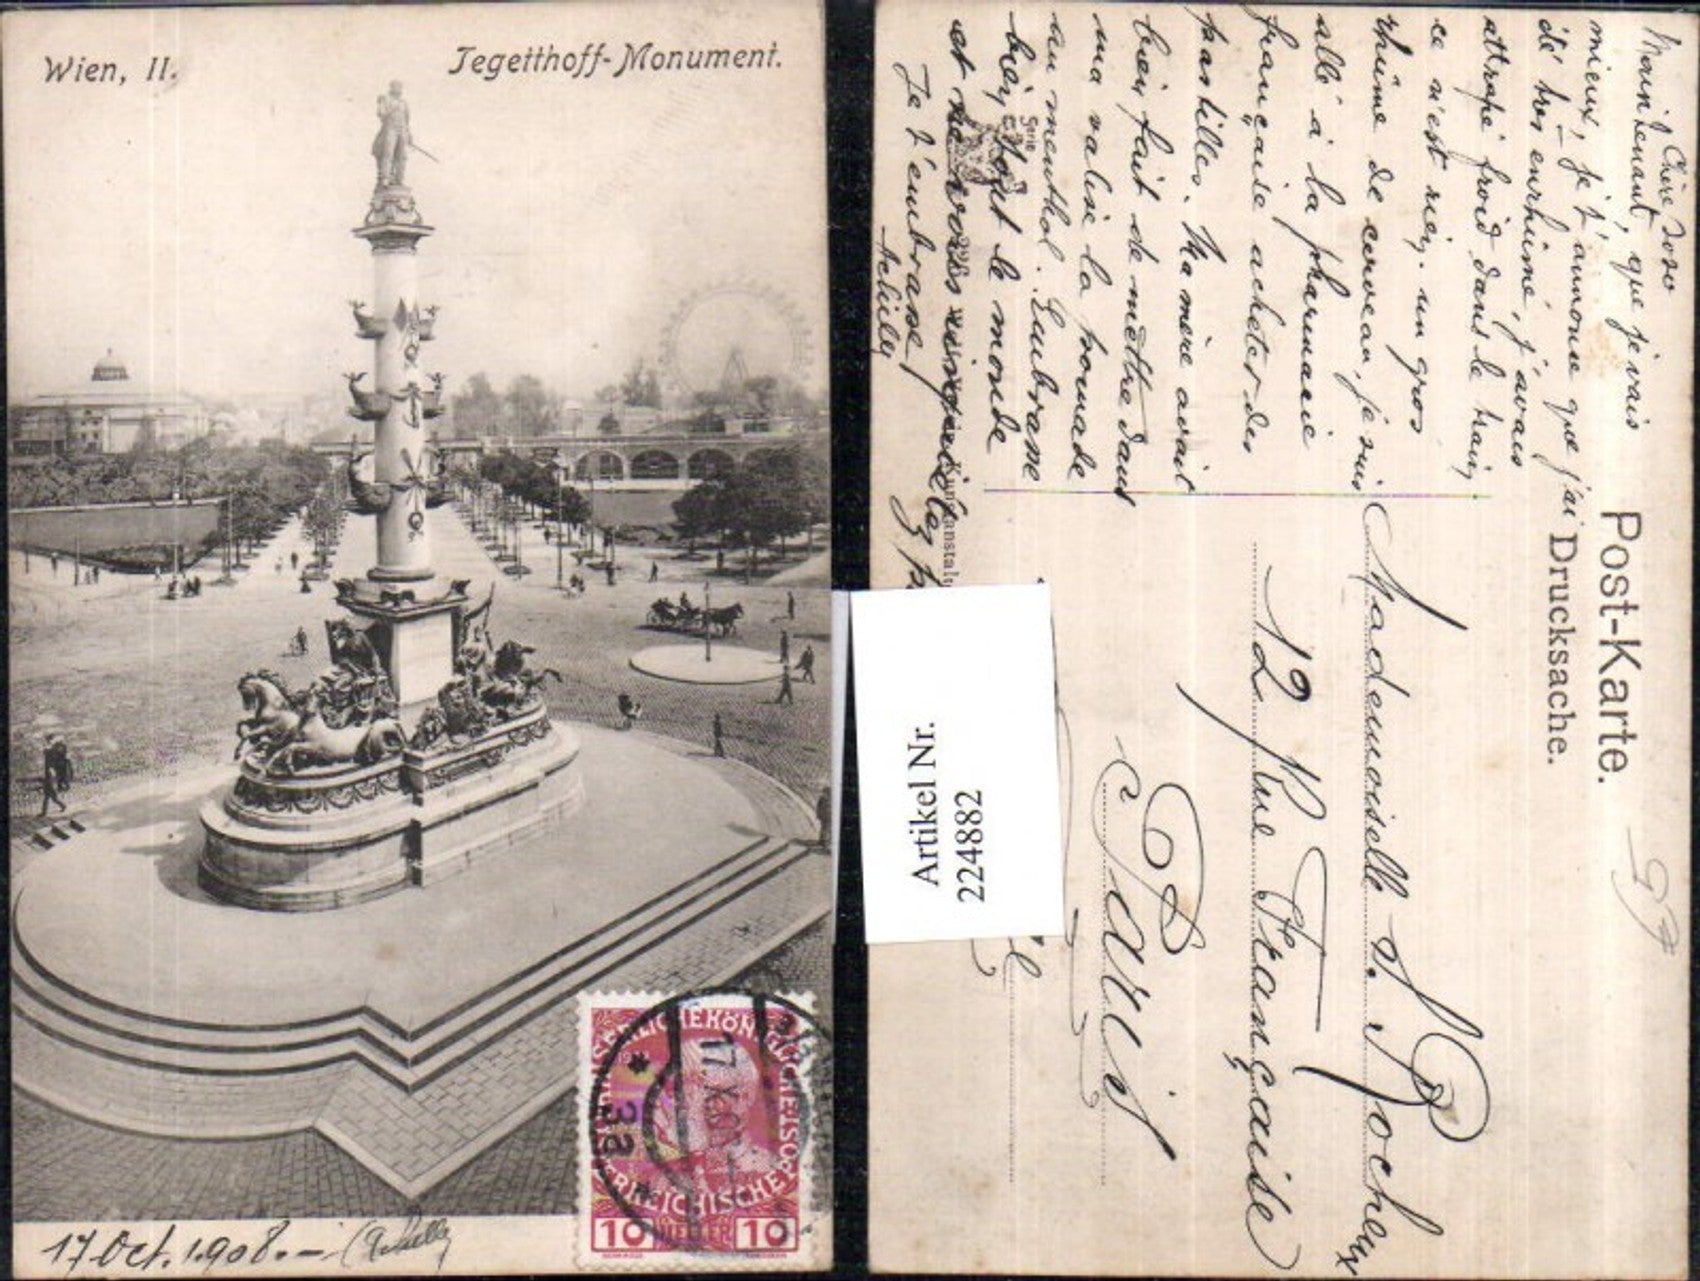 Wien, II.
Tegetthoff-Monument.
ÖSTERREICHISCHE POST
10 HELLER 10
17 X 08
3a
17 Oct. 1908.— (Achille)
Post-Karte.
Drucksache.
Serie
Artikel Nr.
224882
Chère Zozo
Maintenant, que je vais
mieux, je t'annonce que j'ai
été très enrhumé, j'avais
attrapé froid dans le train,
ce n'est rien, un gros
rhûme de cerveau, je suis
allé à la pharmacie
française acheter des
pastilles. Ma mère avait
bien fait de mettre dans
ma valise la pomade
au menthol. Embrasse
bien tout le monde
et
Je t'embrasse,
Achille
Mademoiselle S. Rocheux
12 Rue Française
à Paris